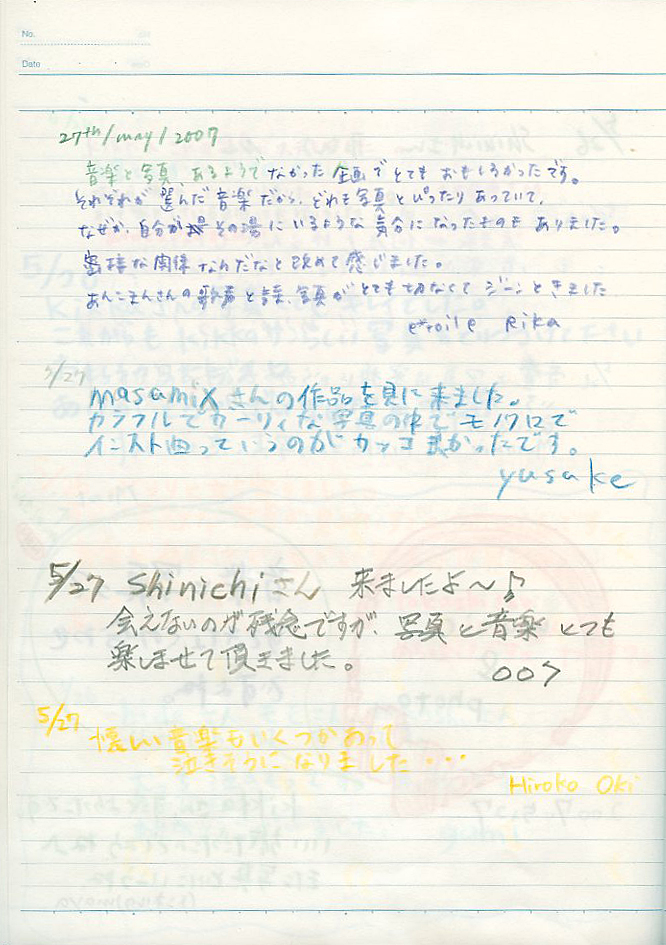 No.
Date
27th/may/2007
音楽と写真 あるようでなかった企画でとてもおもしろかったです。
それぞれが選んだ音楽だから、どれも写真とぴったりあっていて、
なぜか、自分がその場にいるような気分になったものもありました。
密接な関係なんだなと改めて感じました。
あんこまんさんの歌声と詩、写真がとても切なくてジーンときました
etoile Rika
5/27
masamixさんの作品を見に来ました。
カラフルでガーリィな写真の中でモノクロで
インスト曲っていうのがカッコよかったです。
yusake
5/27 Shinichiさん 来ましたよ〜♪
会えないのが残念ですが、写真と音楽とても
楽しませて頂きました。
007
5/27
懐しい音楽もいくつかあって
泣きそうになりました・・・
Hiroko Oki